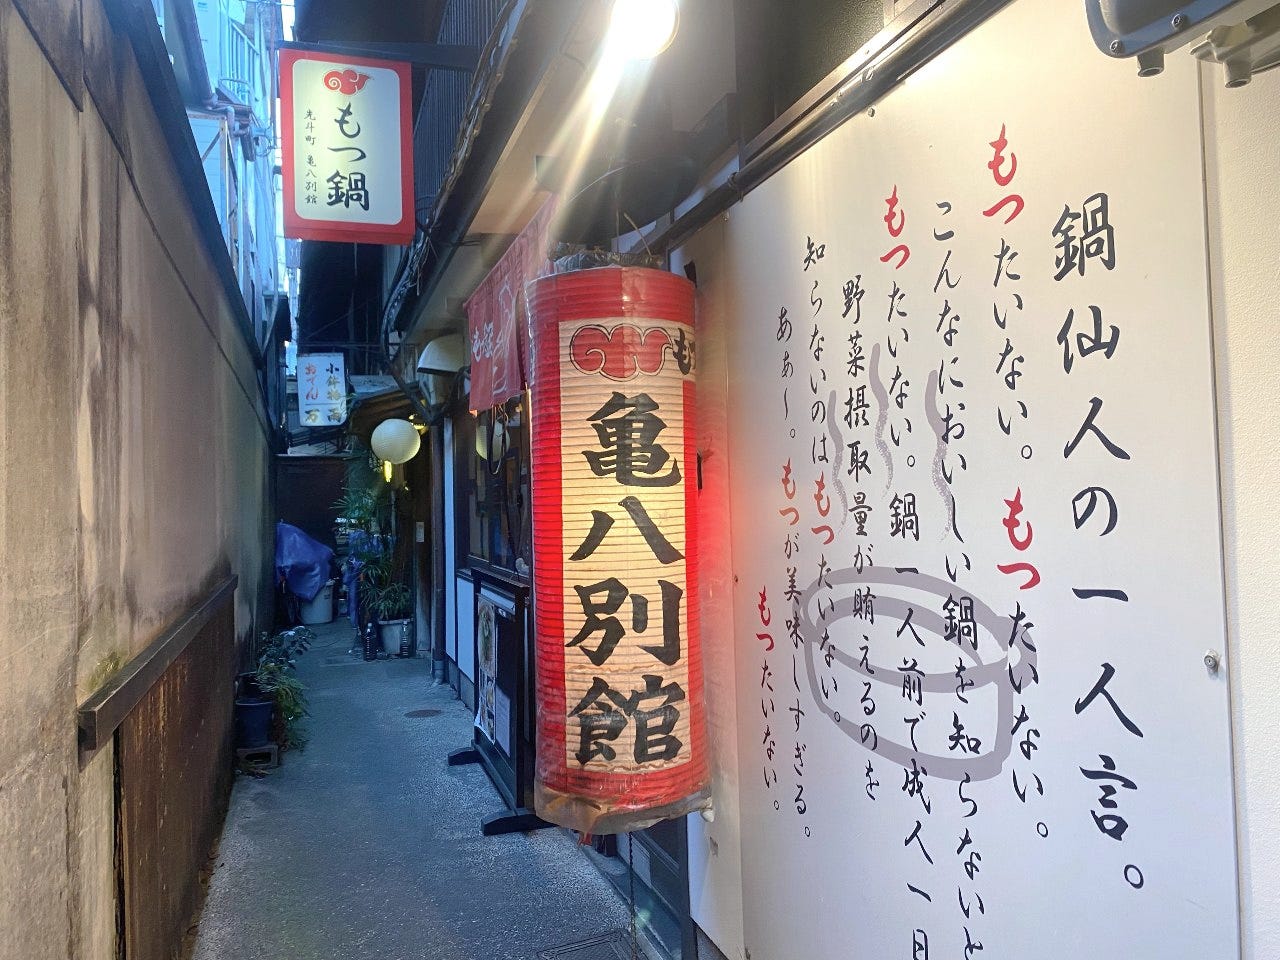 もつ鍋
先斗町 亀八別館
小鉢物
おでん
万
もつ
亀八別館
鍋仙人の一人言。
もつたいない。もつたいない。
こんなにおいしい鍋を知らないと
もつたいない。鍋一人前で成人一日
野菜摂取量が賄えるのを
知らないのはもつたいない。
あぁ〜。もつが美味しすぎる。
もつたいない。